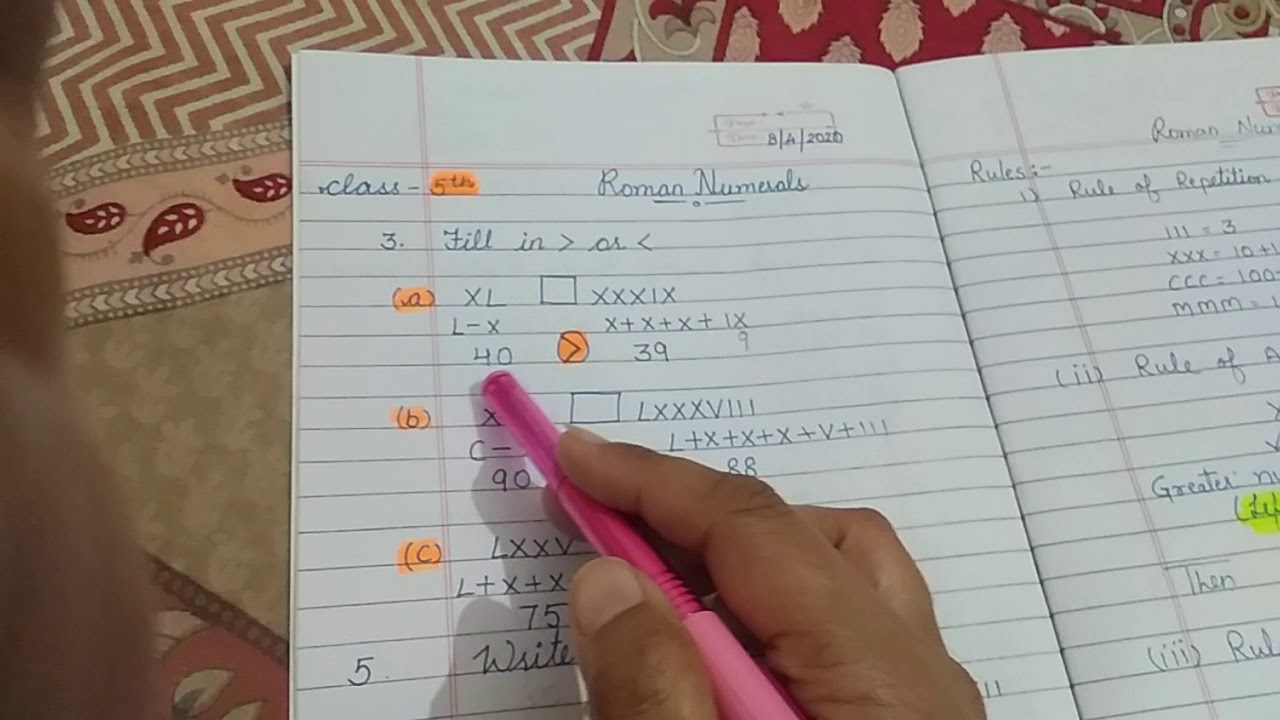 8/4/2020
class - 5th Roman Numerals
3. Fill in > or <
(a) XL XXXIX
L-X X+X+X+ IX
9
40 > 39
(b) X LXXXVIII
C- L+X+X+X+V+III
90 88
(c) LXXV
L+X+X
75
5 Write
Roman
Rules:-
i) Rule of Repetition
III = 3
XXX = 10+1
CCC = 100
MMM = 1
(ii) Rule of A
Greater
Then
(iii) Rul